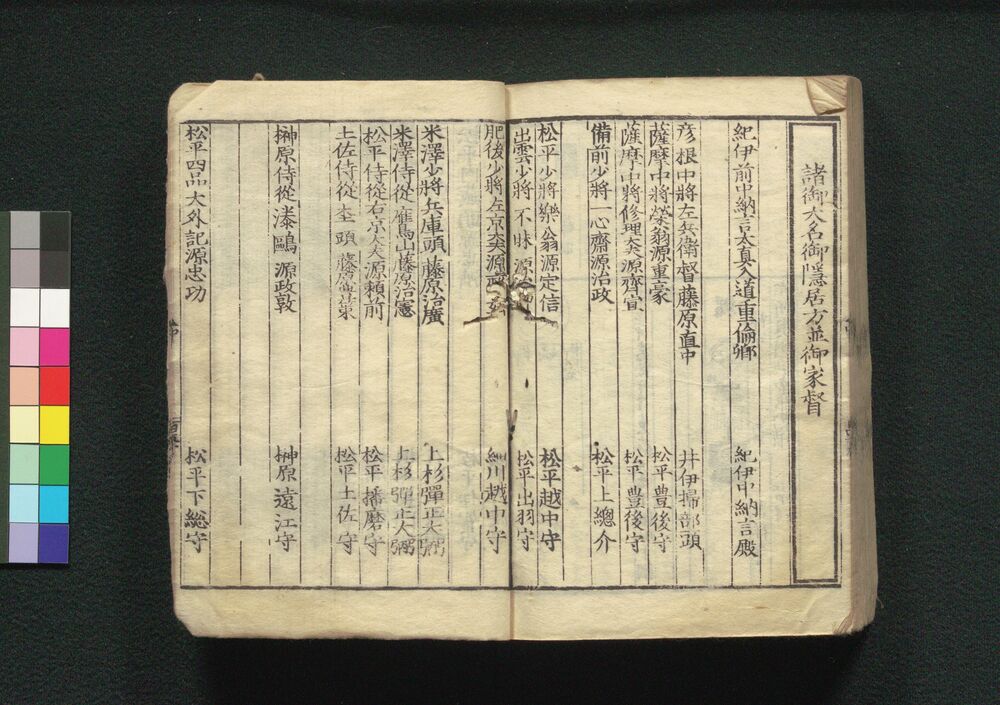 諸御大名御隱居方並御家督
紀伊前中納言太真入道重倫卿 紀伊中納言殿
彦根中將左兵衛督藤原直中 井伊掃部頭
薩摩中將榮翁源重豪 松平豊後守
薩摩中將修理大夫源齊宣 松平豊後守
備前少將一心齋源治政 松平上總介
松平少將樂翁源定信 松平越中守
出雲少將不昧源 松平出羽守
肥後少將左京大夫源 細川越中守
米澤少將兵庫頭藤原治廣 上杉彈正大弼
米澤侍從鷹山藤原治憲 上杉彈正大弼
松平侍從右京大夫源頼前 松平播磨守
土佐侍從 頭藤原 松平土佐守
榊原侍從 鷗源政敦 榊原遠江守
松平四品大外記源忠功 松平下総守